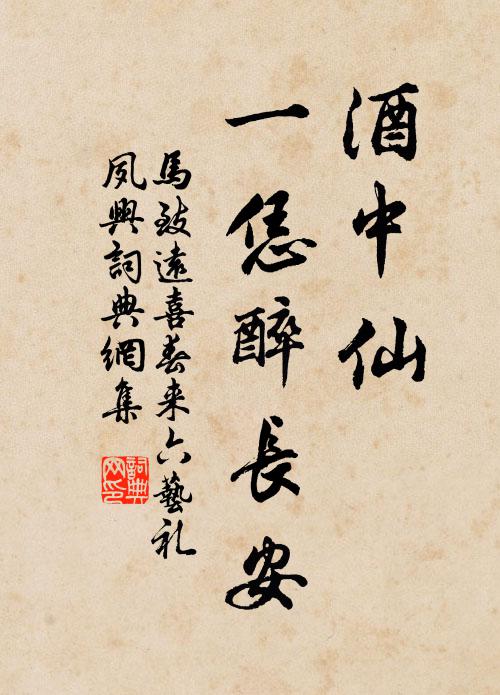 酒中仙
一恁醉長安
馬致遠喜春来六藝礼
夙興詞典網集
詞典
网印